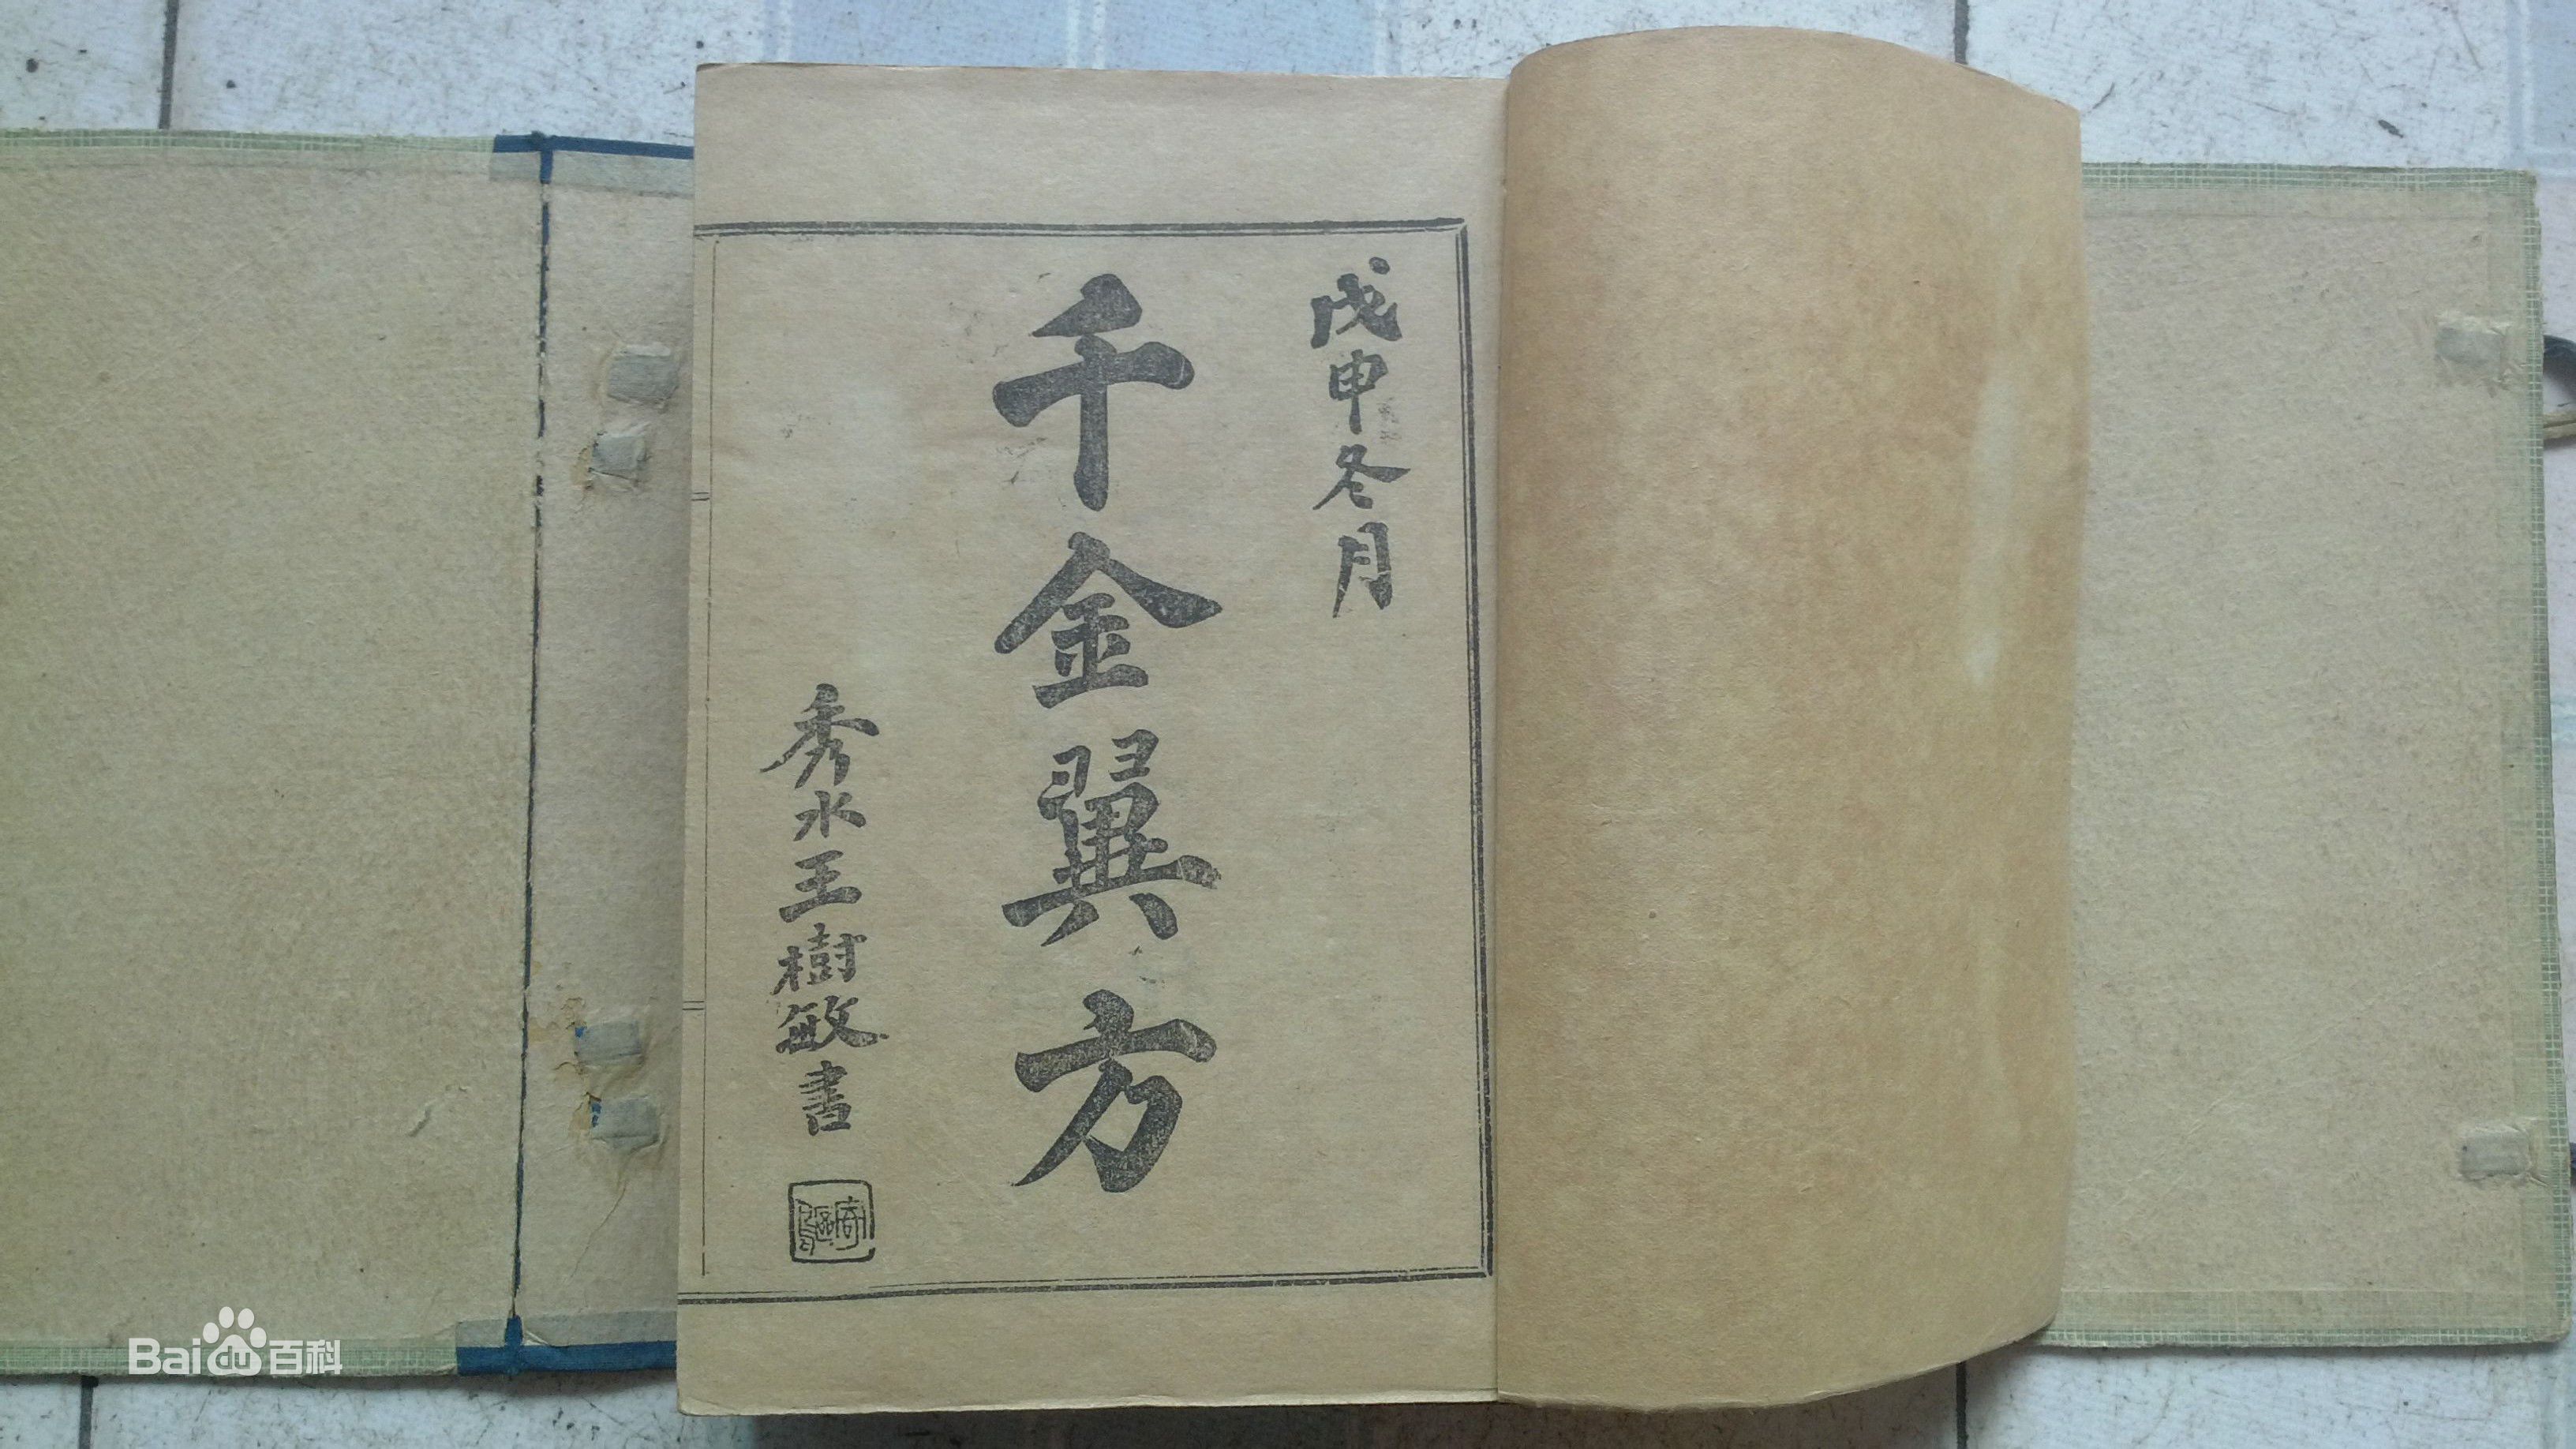 戊申冬月
千金翼方
秀水王樹敏書
Baidu百科